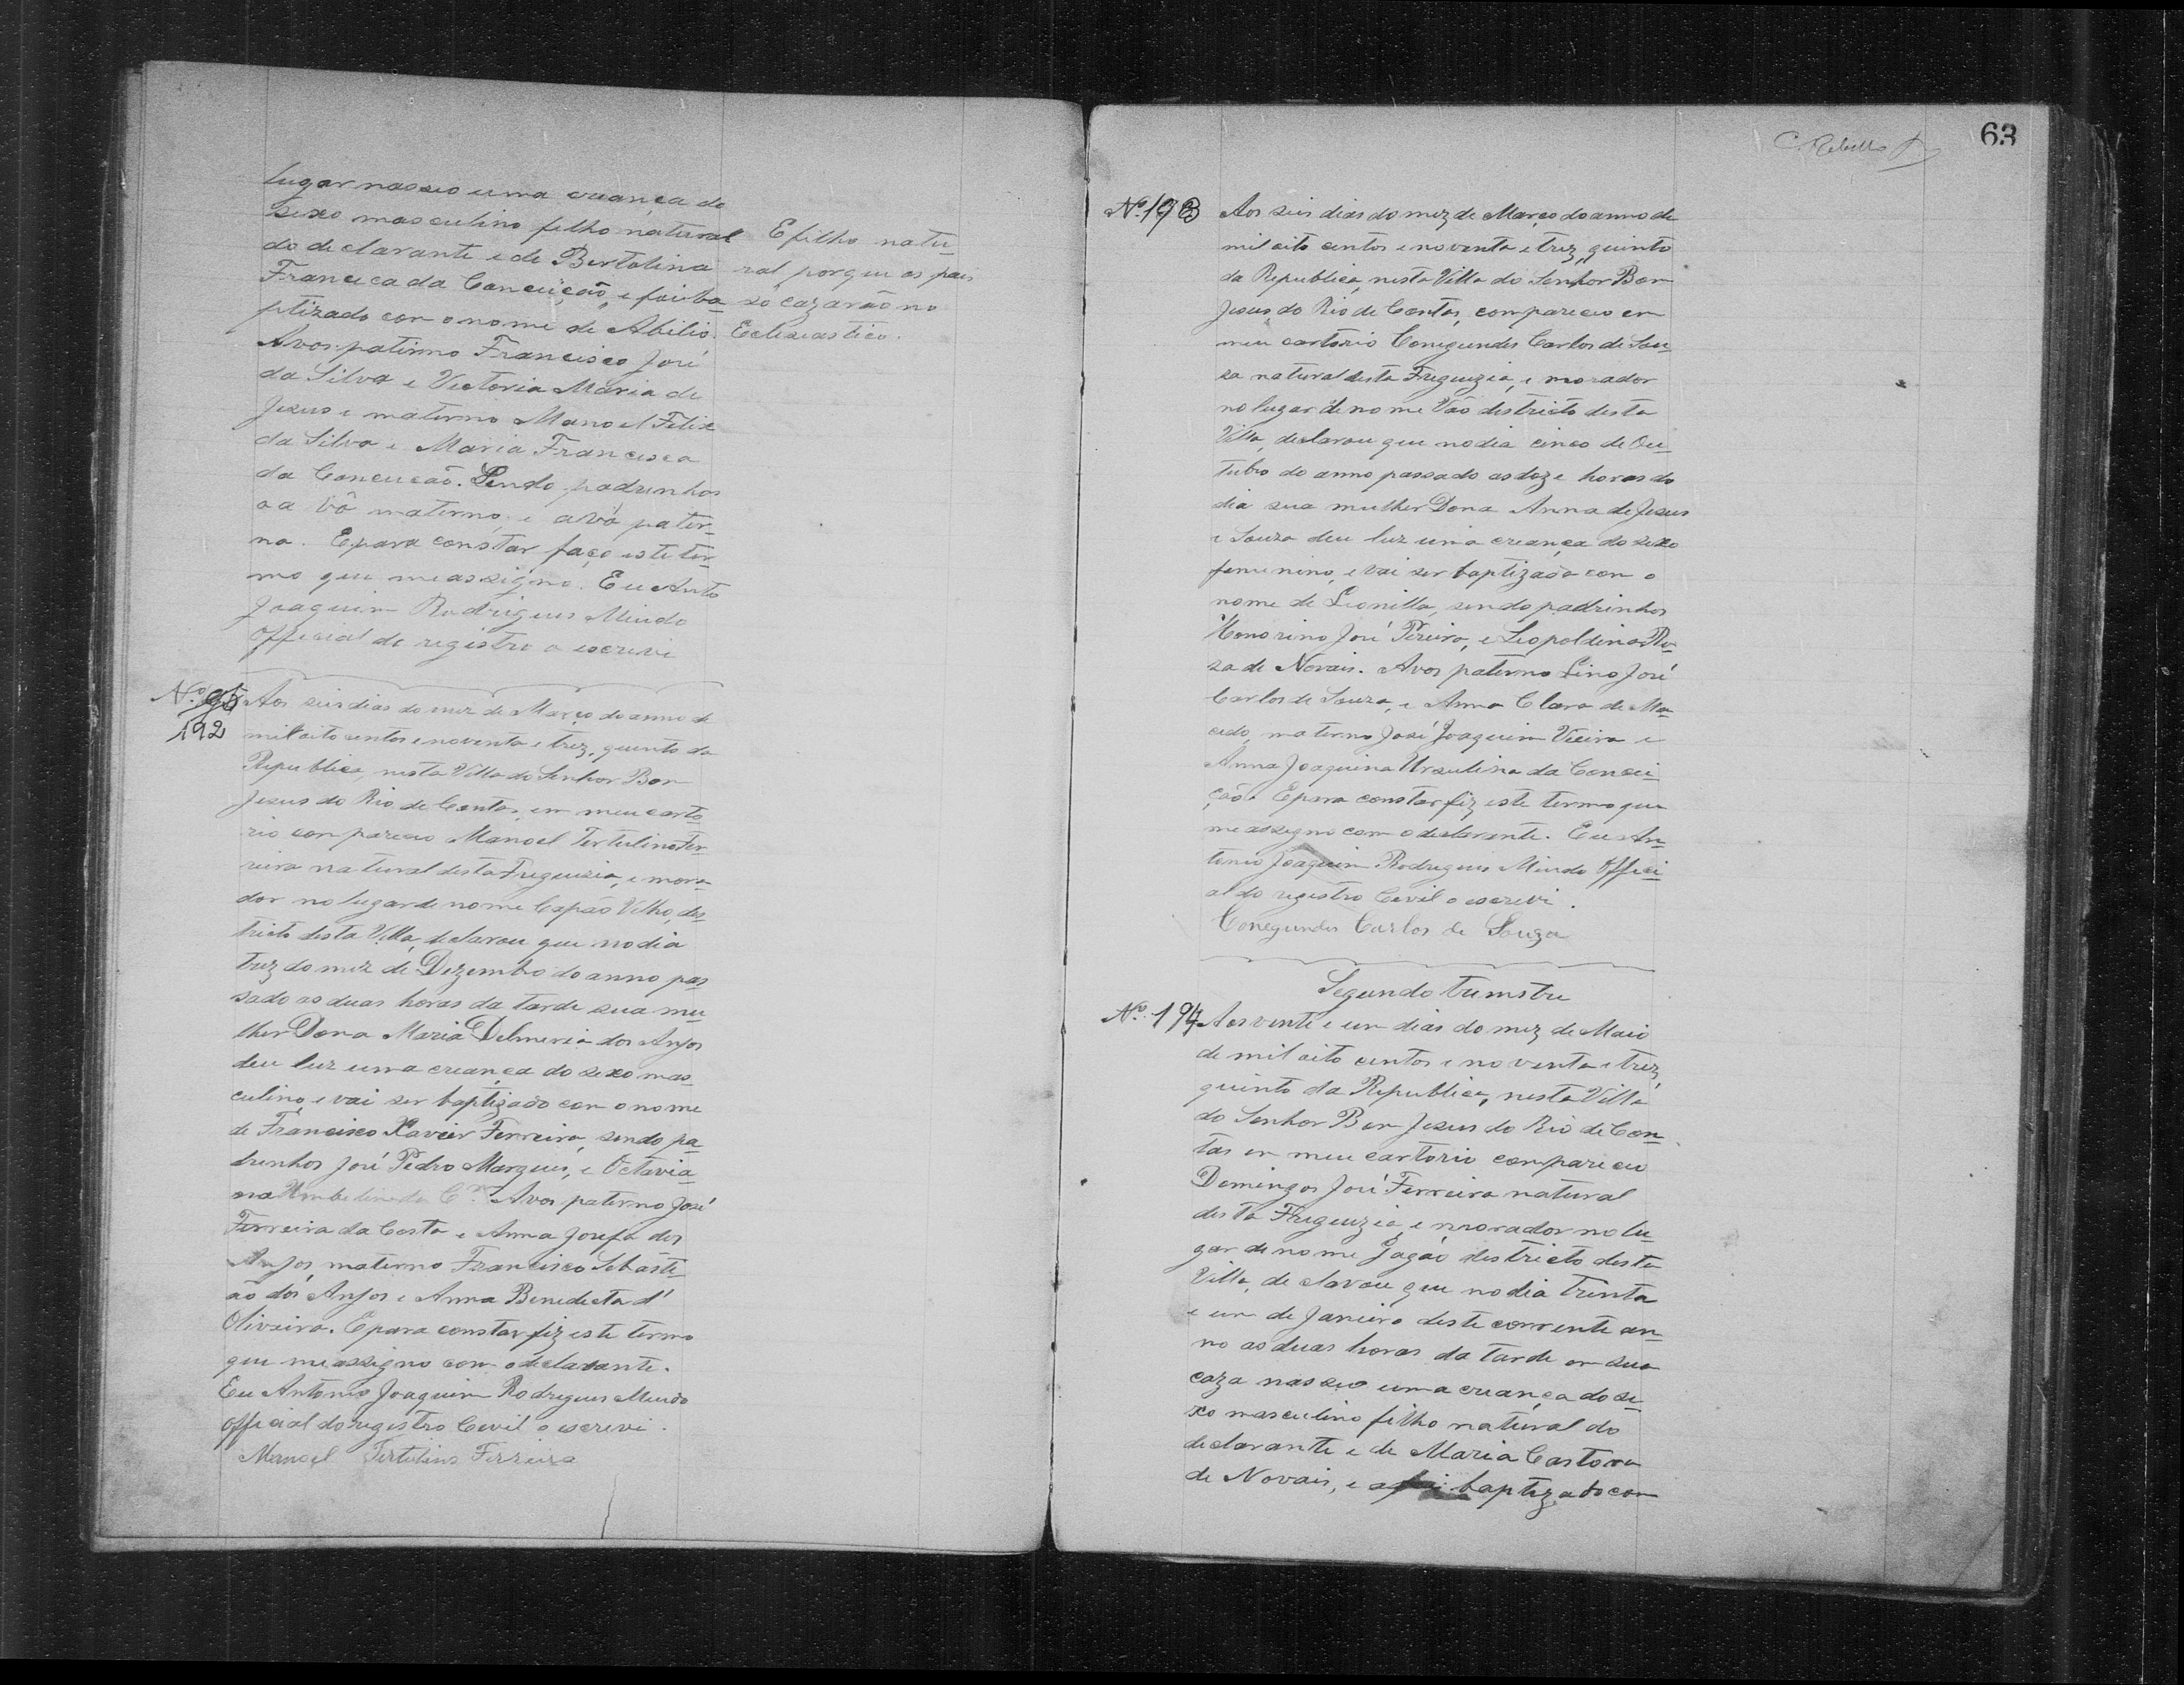 lugar nasceo uma creança do
sexo masculino filho natural
do declarante e de Bertolina
Francisca da Conceição, e foi ba
ptizado com o nome de Abilio.
Avos paterno Francisco José
da Silva e Victoria Maria de
Jesus e materno Manoel Felix
da Silva e Maria Francisca
da Conceição. Sendo padrinhos
o a vô materno, e avó pater-
na. E para constar faço este ter-
mo que me assigno. Eu Anto
Joaquim Rodrigues Miudo
official do registro o escrevi
E filho natu-
ral porque os pais
só cazarão no
Eclesiastico.
Nº 95
192
Aos seis dias do mez de Março do anno de
mil oito centos e noventa e trez, quinto da
Republica nesta Villa do Senhor Bom
Jesus do Rio de Contas, em meu carto
rio compareceo Manoel Tertulino Fer-
reira natural desta Freguizia, e mora-
dor no lugar de nome Capão Velho, des-
tricto desta Villa, declarou que no dia
trez do mez de Dezembro do anno pas-
sado as duas horas da tarde sua mu-
lher Dona Maria Delmeria dos Anjos
deu luz uma creança do sexo mas-
culino, e vai ser baptizado com o nome
de Francisco Xavier Ferreira, sendo pa-
drinhos José Pedro Marques, e Octavia-
na Umbelina da Cam Avos paterno José
Ferreira da Costa e Anna Josefa dos
Anjos, materno Francisco Sebasti-
ão dos Anjos e Anna Benedicta d'
Oliveira. E para constar fiz este termo
que me assigno com o declarante.
Eu Antonio Joaquim Rodrigues Miudo
official do registro Cevil o escrevi.
Manoel Tertulino Ferreira
C. Rebello
63
Nº 193
Aos seis dias do mez de Março do anno de
mil oito centos e noventa e trez, quinto
da Republica, nesta Villa do Senhor Bom
Jesus do Rio de Contas, compareceo em
meu cartorio Conegundes Carlos de Sou-
za natural desta Freguizia, e morador
no lugar de nome Vão destricto desta
Villa, declarou que no dia cinco de Ou-
tubro do anno passado as doze horas do
dia sua mulher Dona Anna de Jesus
e Souza deu luz uma creança do sexo
femenino, e vai ser baptizada com o
nome de Leonilla, sendo padrinhos
Honorino José Pereira, e Leopoldina Ro-
za de Novais. Avos paterno Lino José
Carlos de Souza, e Anna Clara de Ma-
cedo, materno José Joaquim Vieira e
Anna Joaquina Ursulina da Concei-
ção. E para constar fiz este termo que
me assigno com o declarante. Eu An-
tonio Joaquim Rodrigues Miudo Offici-
al do registro Cevil o escrevi.
Conegundes Carlos de Souza
Segundo trimstre
Nº 194
Aos vente e um dias do mez de Maio
de mil oito centos e noventa e trez,
quinto da Republica, nesta Villa
do Senhor Bom Jesus do Rio de Con-
tas em meu cartorio compareceu
Domingos José Ferreira natural
desta Freguizia, e morador no lu-
gar de nome Gagáo destricto desta
Villa, declarou que no dia trinta
e um de Janeiro deste corrente an-
no as duas horas da tarde em sua
caza nasceo uma creança do se-
xo masculino filho natural do
declarante e de Maria Castora
de Novais, e foi baptizado com